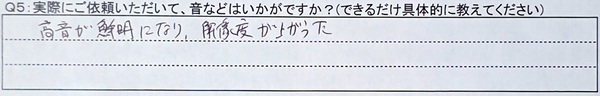 Q5:実際にご依頼いただいて、音などはいかがですか?(できるだけ具体的に教えてください)
高音が鮮明になり、解像度が上がった